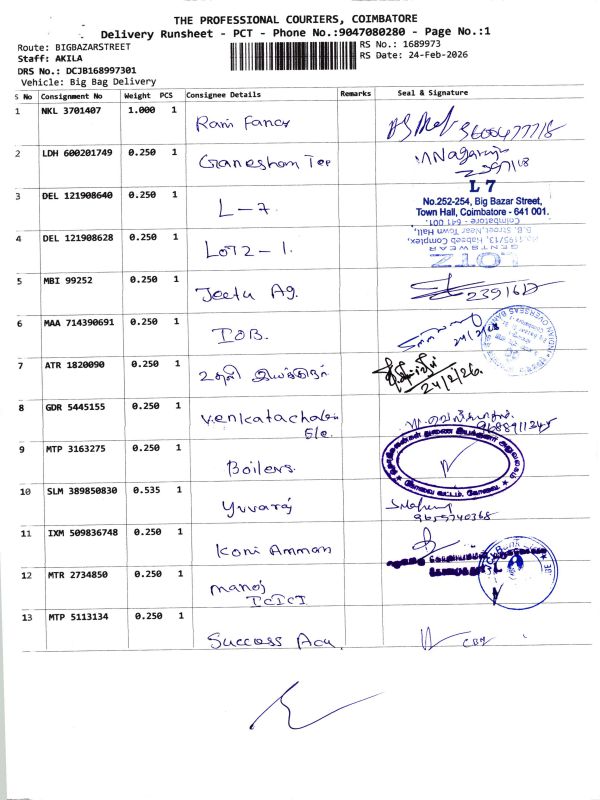 THE PROFESSIONAL COURIERS, COIMBATORE
Delivery Runsheet - PCT - Phone No.:9047080280 - Page No.:1
Route: BIGBAZARSTREET
RS No.: 1689973
Staff: AKILA
RS Date: 24-Feb-2026
DRS No.: DCJB168997301
Vehicle: Big Bag Delivery
S No Consignment No Weight PCS Consignee Details Remarks Seal & Signature
1 NKL 3701407 1.000 1 Rani Fancy 3600477718
2 LDH 600201749 0.250 1 Ganesham Tex
3 DEL 121908640 0.250 1 L-7
L 7
No.252-254, Big Bazar Street,
Town Hall, Coimbatore - 641 001.
4 DEL 121908628 0.250 1 LOTZ - 1.
Coimbatore - 641 001.
B.B. Street, Near Town Hall,
GENTSWEAR
LOTZ
5 MBI 99252 0.250 1 Jeetu Ag.
6 MAA 714390691 0.250 1 IOB.
7 ATR 1820090 0.250 1 உதவி இயக்குநர்
24/2/26.
8 GDR 5445155 0.250 1 Venkatachalam
9 MTP 3163275 0.250 1 Boilers.
10 SLM 389850830 0.535 1 Yuvaraj
9659740368
11 IXM 509836748 0.250 1 Koni Amman
12 MTR 2734850 0.250 1 Manoj
ICICI
13 MTP 5113134 0.250 1 Success Acu.